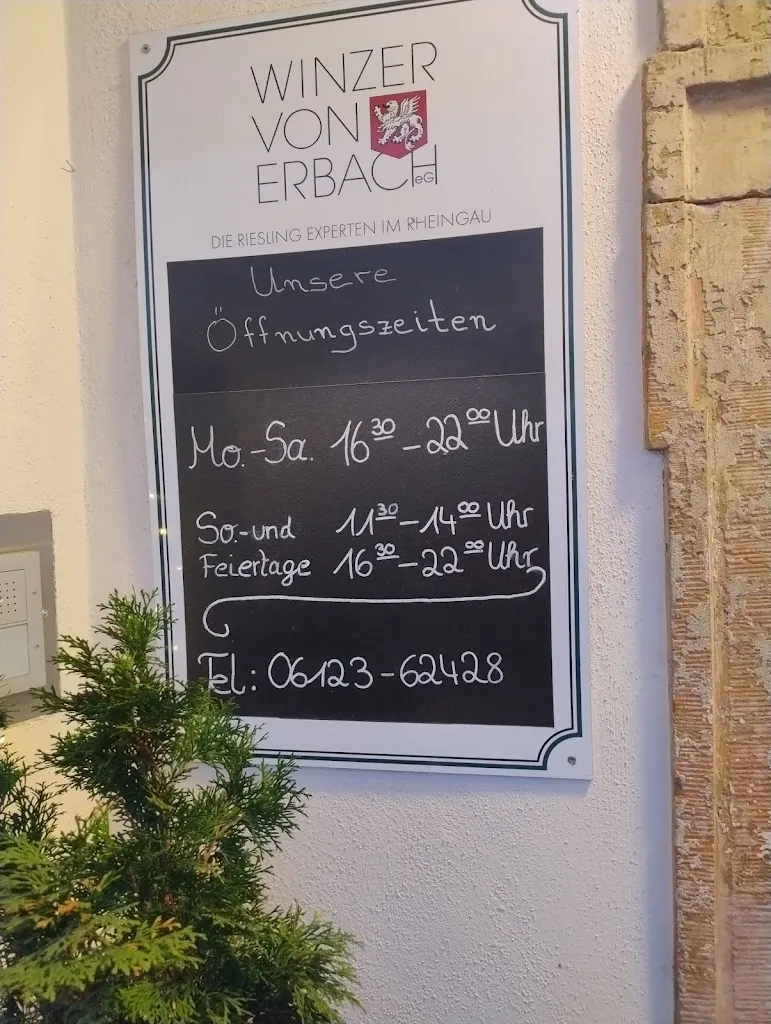 WINZER
VON
ERBACH eG
DIE RIESLING EXPERTEN IM RHEINGAU
Unsere
Öffnungszeiten
Mo.-Sa. 16³⁰-22⁰⁰ Uhr
So.-und 11³⁰-14⁰⁰ Uhr
Feiertage 16³⁰-22⁰⁰ Uhr
Tel: 06123-62428